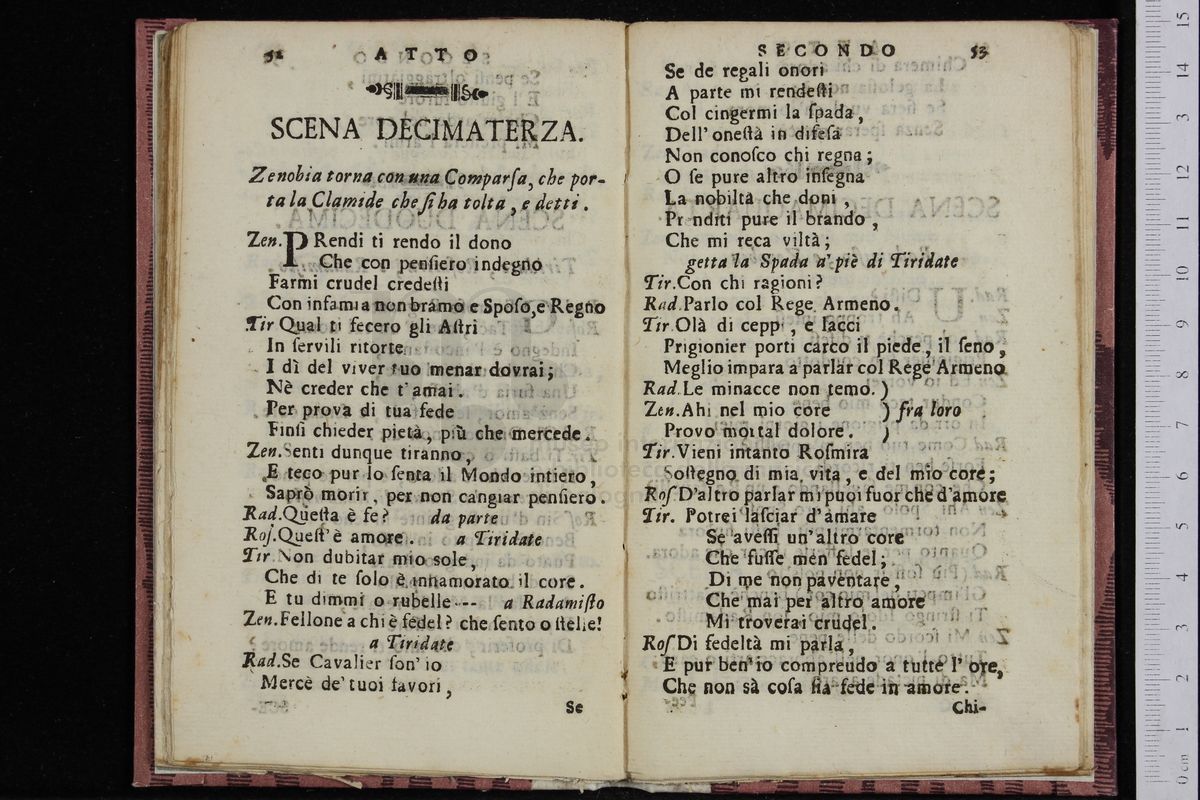 52 ATTO
SCENA DECIMATERZA.
Zenobia torna con una Comparſa, che por-
ta la Clamide che ſi ha tolta, e detti.
Zen. PRendi ti rendo il dono
Che con penſiero indegno
Farmi crudel credeſti
Con infamia non bramo e Spoſo, e Regno
Tir Qual ti fecero gli Aſtri
In ſervili ritorte
I dì del viver tuo menar dovrai;
Nè creder che t'amai.
Per prova di tua fede
Finſi chieder pietà, più che mercede.
Zen. Senti dunque tiranno,
E teco pur lo ſenta il Mondo intiero,
Saprò morir, per non cangiar penſiero.
Rad. Queſta è fe? da parte
Roſ. Queſt'è amore. a Tiridate
Tir. Non dubitar mio sole,
Che di te ſolo è innamorato il core.
E tu dimmi o rubelle --- a Radamiſto
Zen. Fellone a chi è fedel? che ſento o ſtelle!
a Tiridate
Rad. Se Cavalier ſon' io
Mercè de' tuoi favori,
Se
SECONDO 53
Se de regali onori
A parte mi rendeſti
Col cingermi la ſpada,
Dell' oneſtà in difeſa
Non conoſco chi regna;
O ſe pure altro inſegna
La nobiltà che doni,
Pr nditi pure il brando,
Che mi reca viltà;
getta la Spada a' piè di Tiridate
Tir. Con chi ragioni?
Rad. Parlo col Rege Armeno.
Tir. Olà di ceppi, e lacci
Prigionier porti carco il piede, il ſeno,
Meglio impara a parlar col Rege Armeno
Rad. Le minacce non temo. )
Zen. Ahi nel mio core ) fra loro
Provo mortal dolore. )
Tir. Vieni intanto Roſmira
Soſtegno di mia vita, e del mio core;
Roſ D'altro parlar mi puoi fuor che d'amore
Tir. Potrei laſciar d'amare
Se aveſſi un' altro core
Che fuſſe men fedel;
Di me non paventare,
Che mai per altro amore
Mi troverai crudel.
Roſ Di fedeltà mi parla,
E pur ben' io comprendo a tutte l' ore,
Che non sà coſa ſia fede in amore.
Chi-